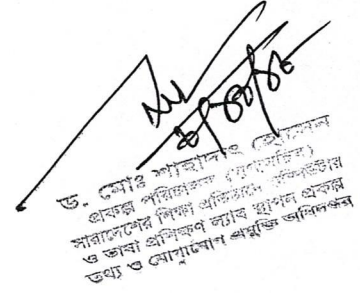 ড. মোঃ শাহাদাৎ হোসেন
প্রকল্প পরিচালক
সারাদেশের শিক্ষা প্রতিষ্ঠানে কম্পিউটার
ও ভাষা প্রশিক্ষণ ল্যাব স্থাপন প্রকল্প
তথ্য ও যোগাযোগ প্রযুক্তি অধিদপ্তর